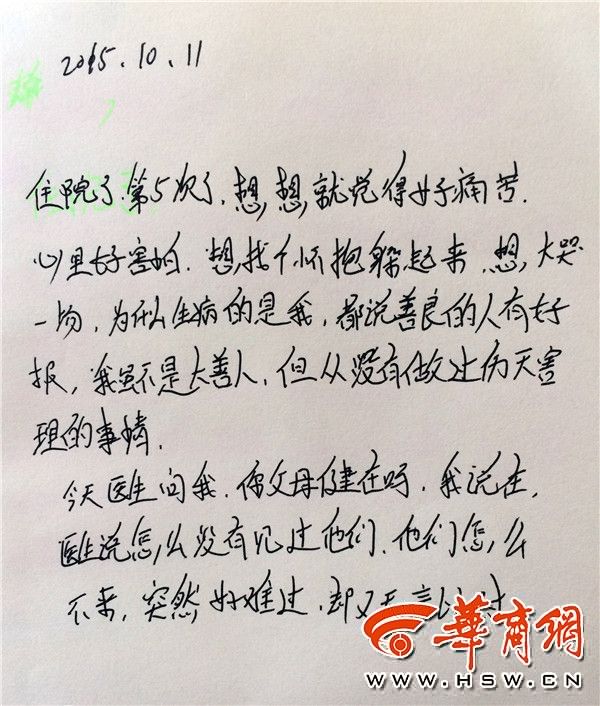 2015.10.11
住院了.第5次了.想想就觉得好痛苦.
心里好害怕.想找个怀抱躲起来.想大哭
一场,为什么生病的是我,都说善良的人有好
报,我虽不是大善人,但从没有做过伤天害
理的事情.
今天医生问我.你父母健在吗.我说在.
医生说怎么没有见过他们.他们怎么
不来,突然好难过.却又无言以对
华商网
WWW.HSW.CN